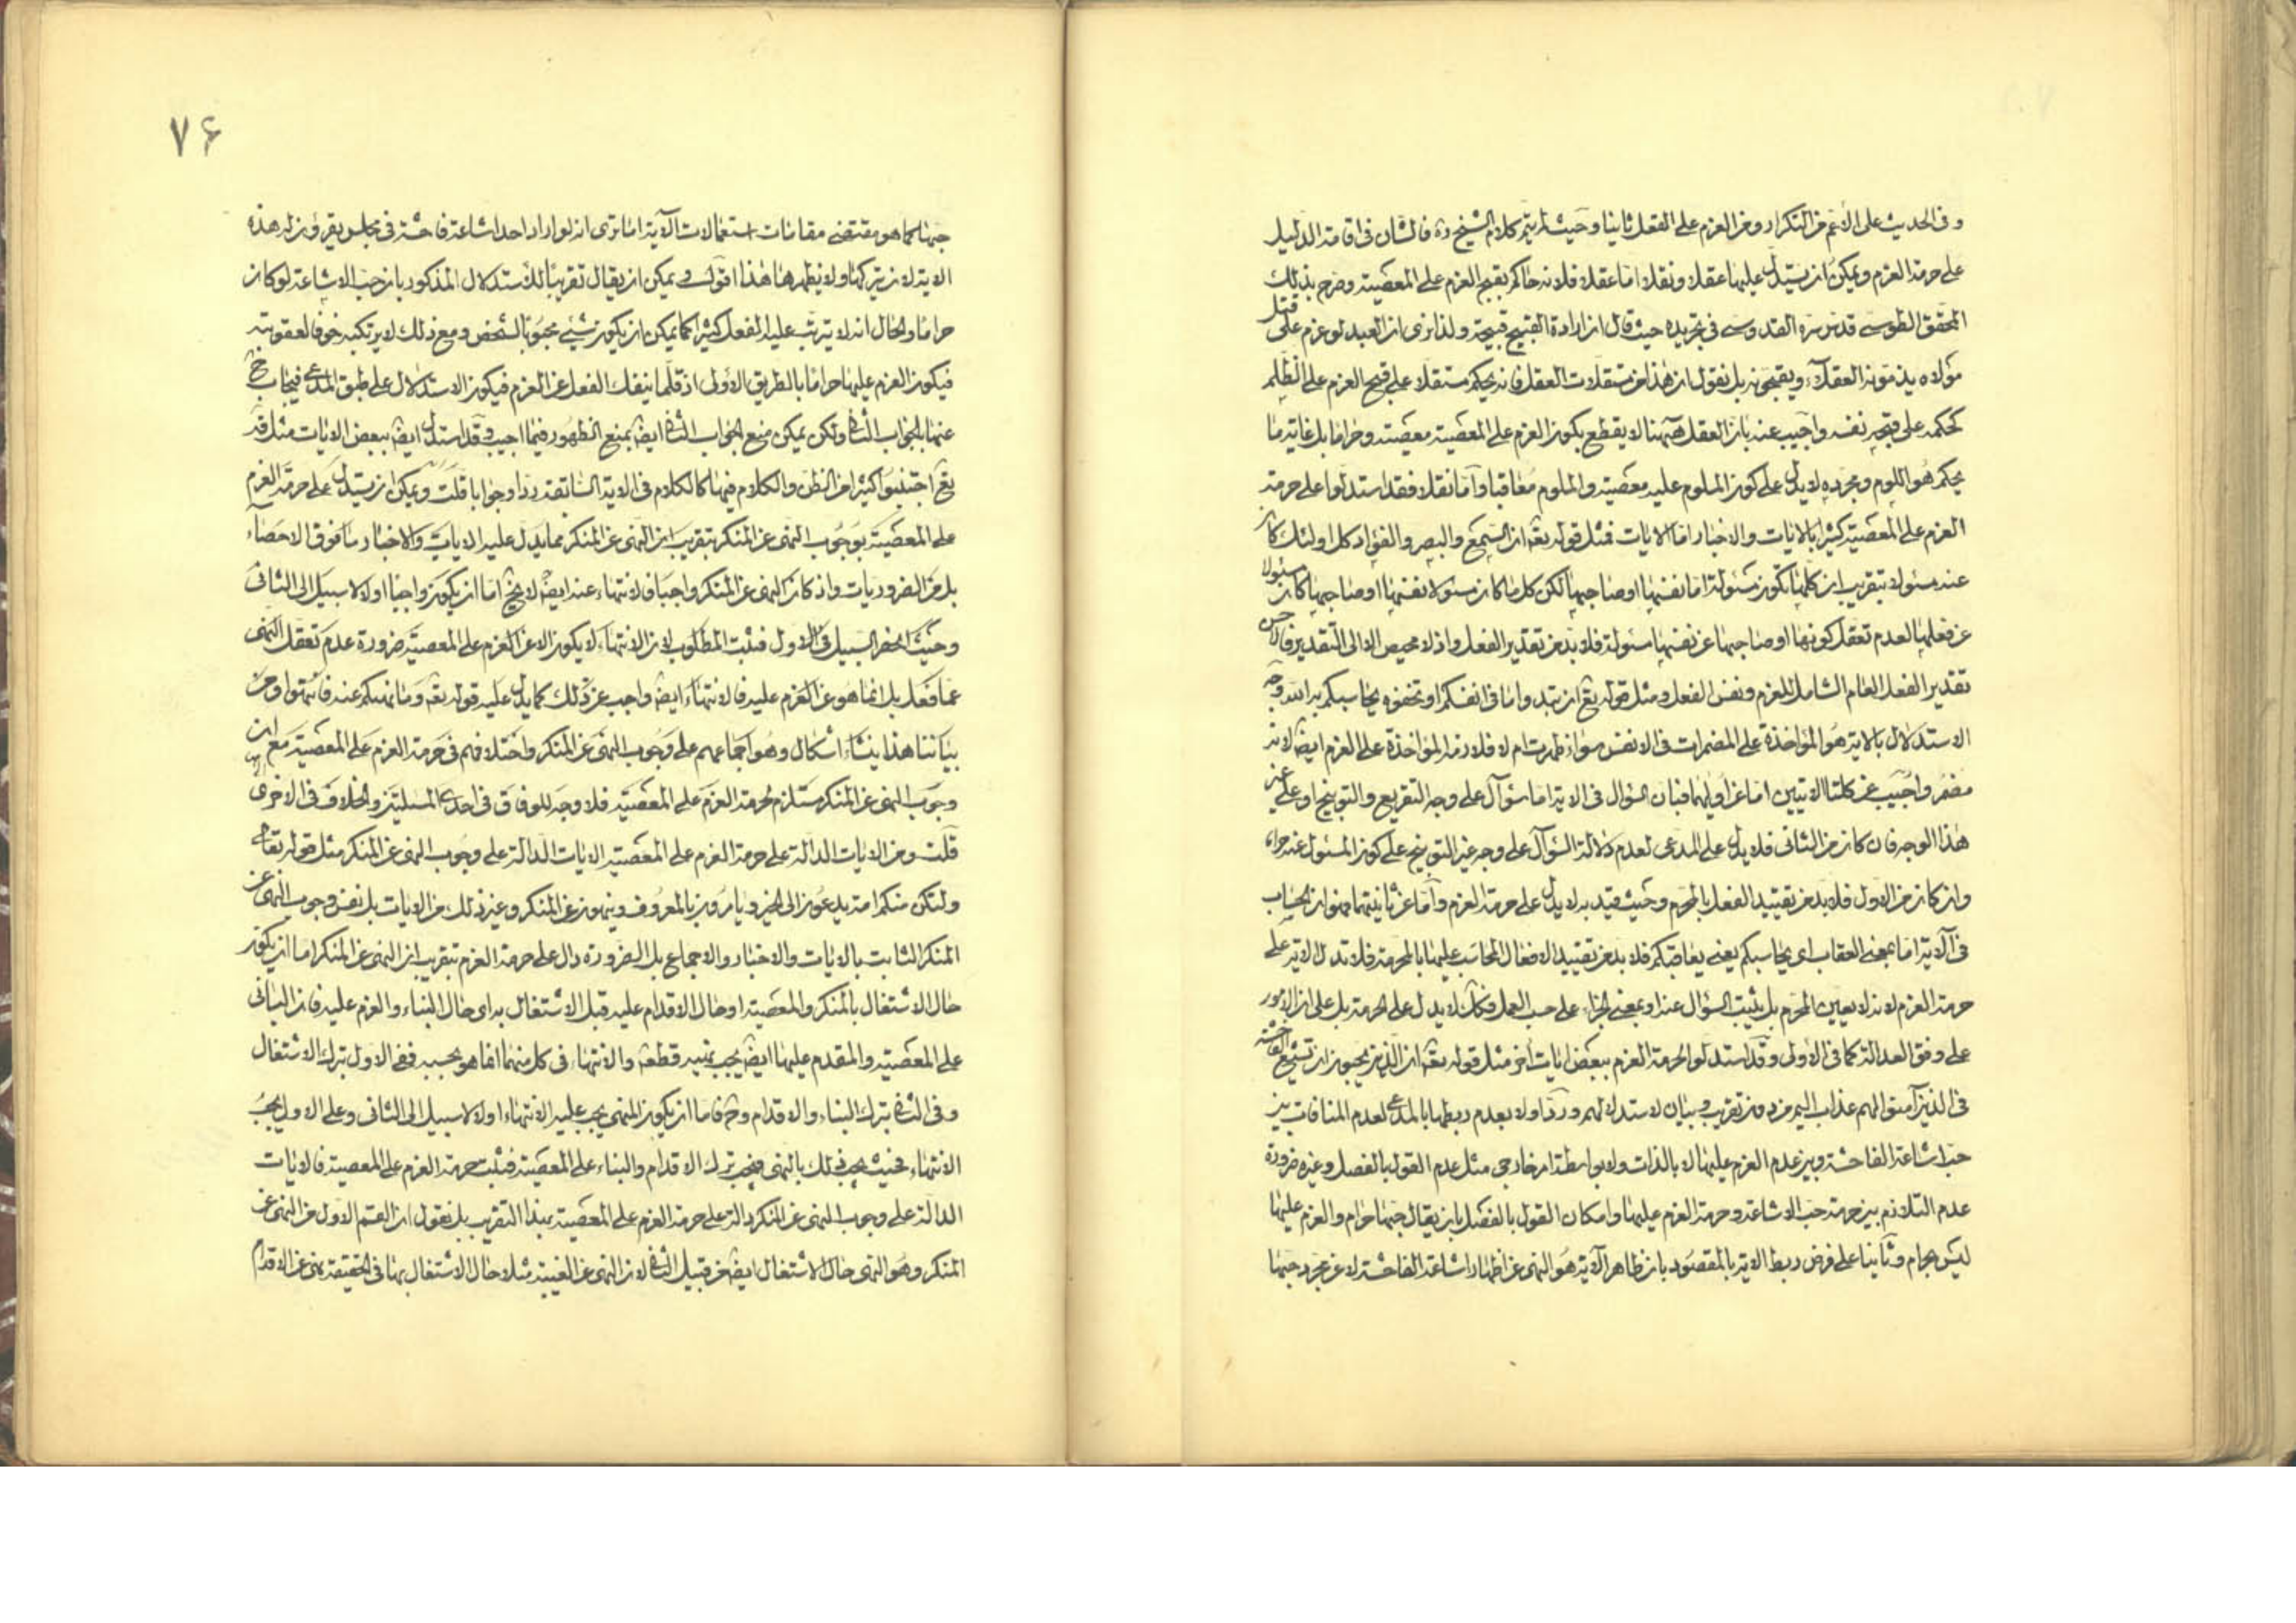 وفى الحديث على الأعم من التكرار ومن العزم على الفعل ثانيا وحيث لم يتم كلام الشيخ ره فالشان فى اقامة الدليل
على حرمة العزم ويمكن ان يستدل عليها عقلا ونقلا اما عقلا فلانه حاكم بقبح العزم على المعصية وصرح بذلك
المحقق الطوسى قدس سره القدوسى فى تجريده حيث قال ان ارادة القبيح قبيحة ولذا نرى ان العبد لو عزم على قتل
مولاه يذمونه العقلاء ويقبحونه بل نقول ان هذا من مستقلات العقل فانه يحكم مستقلا على قبح العزم على الظلم
كحكمه على قبح نفسه واجيب عنه بان العقل ههنا لا يقطع بكون العزم على المعصية معصية وحراما بل غاية ما
يحكم هو اللوم وبمجرده لا يدل على كون الملوم عليه معصية والملوم معاقبا واما نقلا فقد استدلوا على حرمة
العزم على المعصية كثيرا بالايات والاخبار اما الايات فمثل قوله تعة ان السمع والبصر والفؤاد كل اولئك كان
عنه مسئولا بتقريب ان كلها تكون مسئولة اما نفسها او صاحبها لكن كل ما كان مسئولا نفسها او صاحبها كان مسئولا
عن فعلها لعدم تعقل كونها او صاحبها عن نفسها مسئولة فلا بد من تقدير الفعل واذ لا محيص الا الى التقدير فالاحسن
تقدير الفعل العام الشامل للعزم ونفس الفعل ومثل قوله تع ان تبدوا ما فى انفسكم او تخفوه يحاسبكم به الله وجه
الاستدلال بالاية هو المؤاخذة على المضمرات فى الانفس سواء ظهرت ام لا فلازمه المؤاخذة على العزم ايضا لانه
مضمر واجيب عن كلتا الايتين اما عن اوليهما فبان السؤال فى الاية اما سؤال على وجه التقريع والتوبيخ او على غير
هذا الوجه فان كان من الثانى فلا يدل على المدعى لعدم دلالة السؤال على وجه غير التوبيخ على كون المسئول عنه حراما
وان كان من الاول فلا بد من تقييد الفعل بالمحرم وحيث قيد به لا يدل على حرمة العزم واما عن ثانيتهما فهو ان الحساب
فى الآية اما بمعنى العقاب اى يحاسبكم يعنى يعاقبكم فلا بد من تقييد الافعال المحاسب عليها بالمحرمة فلا تدل الاية على
حرمة العزم لانه لا يعين المحرم بل يثبت السؤال عنه او بمعنى الجزاء على حسب العمل فكك لا يدل على الحرمة بل على ان الامور
على وفق العدالة كما فى الاولى وقد استدلوا لحرمة العزم ببعض ايات أخر مثل قوله تعة ان الذين يحبون ان تشيع الفاحشة
فى الذين آمنوا لهم عذاب اليم من دون تقريب وبيان لاستدلالهم ورد اولا بعدم ربطها بالمدعى لعدم المنافات بين
حب اشاعة الفاحشة وبين عدم العزم عليها لا بالذات ولا بواسطة امر خارجى مثل عدم القول بالفصل وغيره ضرورة
عدم التلازم بين حرمة حب الاشاعة وحرمة العزم عليها وامكان القول بالفصل بان يقال حبها حرام والعزم عليها
ليس بحرام وثانيا على فرض ربط الاية بالمقصود بان ظاهر الآية هو النهى عن اظهار اشاعة الفاحشة لا عن مجرد حبها
٧۶
حبها كما هو مقتضى مقامات استعمالات الآية اما ترى انه لو اراد احد اشاعة فاحشة فى مجلس يقرؤن له هذه
الاية لان يتركها ولا يظهرها هذا اقول ويمكن ان يقال تقريبا للاستدلال المذكور بان حب الاشاعة لو كان
حراما والحال انه لا يترتب عليه الفعل كثيرا كما يمكن ان يكون شيئ محبوبا لشخص ومع ذلك لا يرتكبه خوفا لعقوبته
فيكون العزم عليها حراما بالطريق الاولى اذ قلما ينفك الفعل عن العزم فيكون الاستدلال على طبق المدعى فيجاب ح
عنها بالجواب الثانى ولكن يمكن منع الجواب الثانى ايضا بمنع الظهور فيما اجيب وقد استدل ايضا ببعض الايات مثل قوله
تع اجتنبوا كثيرا من الظن والكلام فيها كالكلام فى الاية السابقة ردا وجوابا قلت ويمكن ان يستدل على حرمة العزم
على المعصية بوجوب النهى عن المنكر بتقريب ان النهى عن المنكر مما يدل عليه الايات والاخبار ما فوق الاحصاء
بل من الضروريات واذ كان النهى عن المنكر واجبا فالانتهاء عنه ايضا لا يخ اما ان يكون واجبا اولا لا سبيل الى الثانى
وحيث انحصر السبيل فى الاول فثبت المطلوب لان الانتهاء لا يكون الا عن العزم على المعصية ضرورة عدم تعقل النهى
عما فعل بل انما هو عن العزم عليه فالانتهاء ايضا واجب عن ذلك كما يدل عليه قوله تعة وما نهيكم عنه فانتهوا ومن
بياننا هذا ينشاء اشكال وهو اجماعهم على وجوب النهى عن المنكر واختلافهم فى حرمة العزم على المعصية مع ان
وجوب النهى عن المنكر مستلزم لحرمة العزم على المعصية فلا وجه للوفاق فى احدى المسئلتين والخلاف فى الاخرى
قلت ومن الايات الدالة على حرمة العزم على المعصية الايات الدالة على وجوب النهى عن المنكر مثل قوله تعالى
ولتكن منكم امة يدعون الى الخير ويامرون بالمعروف وينهون عن المنكر وغير ذلك من الايات بل نفس وجوب النهى عن
المنكر الثابت بالايات والاخبار والاجماع بل الضرورة دال على حرمة العزم بتقريب ان النهى عن المنكر اما ان يكون
حال الاشتغال بالمنكر والمعصية او حال الاقدام عليه قبل الاشتغال به اى حال البناء والعزم عليه فان البانى
على المعصية والمقدم عليها ايضا يجب نهيه قطعا والانتهاء فى كل منهما انما هو بحسبه ففى الاول ترك الاشتغال
وفى الثانى ترك البناء والاقدام وح فاما ان يكون المنهى يجب عليه الانتهاء اولا لا سبيل الى الثانى وعلى الاول يجب
الانتهاء فحيث يجب ذلك بالنهى فيجب ترك الاقدام والبناء على المعصية فثبت حرمة العزم على المعصية فالايات
الدالة على وجوب النهى عن المنكر دالة على حرمة العزم على المعصية بهذا التقريب بل نقول ان القسم الاول من النهى عن
المنكر وهو النهى حال الاشتغال ايضا من قبيل الثانى لان النهى عن الغيبة مثلا حال الاشتغال بها فى الحقيقة نهى عن الاقدام